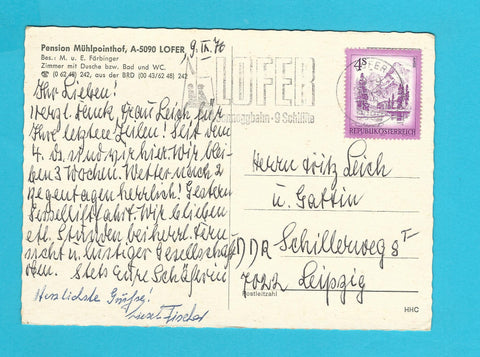 Pension Mühlpointhof, A-5090 LOFER
Bes.: M. u. E. Färbinger
Zimmer mit Dusche bzw. Bad und WC.
☎ (0 62 48) 242, aus der BRD (00 43/62 48) 242
9. IX. 76
Ihr Lieben!
Herzl. Dank, Frau Leich für
Ihre letzten Zeilen! Seit dem
4. ds. sind wir hier. Wir blei-
ben 3 Wochen. Wetter nach 2
Regentagen herrlich! Gestern
Sesselliftfahrt. Wir blieben
etl. Stunden bei herrl. Fern-
sicht u. lustiger Gesellschaft
oben. Stets Eure Schäferin
Herzlichste Grüße!
Fischer
LOFER
9 Schilifte
4S
REPUBLIK ÖSTERREICH
Herrn Fritz Leich
u. Gattin
DDR Schillerweg 8 I
7022 Leipzig
Postleitzahl
HHC